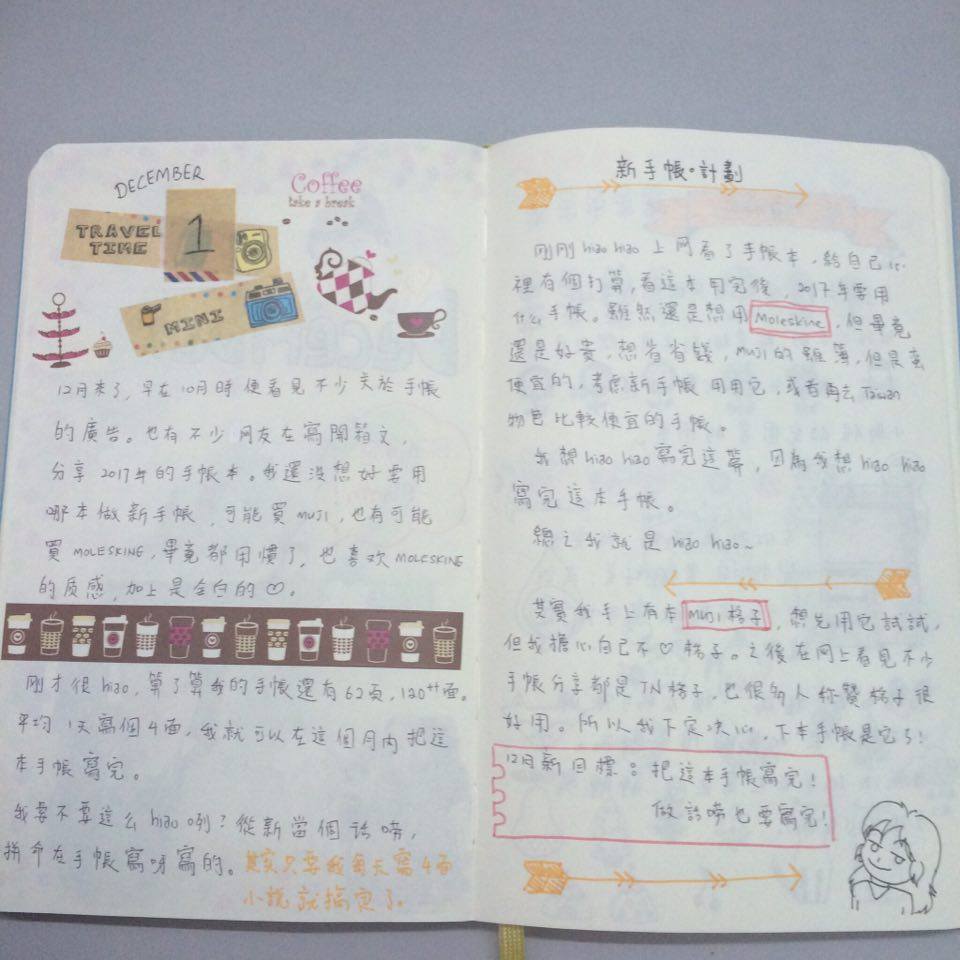 DECEMBER
TRAVEL
TIME
1
MINI
Coffee
take a break
12月来了，早在10月時便看見不少关於手帳
的廣告。也有不少网友在寫開箱文，
分享2017年的手帳本。我還没想好要用
哪本做新手帳，可能買MUJI，也有可能
買MOLESKINE，畢竟都用慣了，也喜欢MOLESKINE
的质感，加上是全白的♡。
刚才很hiao，算了算我的手帳還有62页，120++面。
平均1天寫個4面，我就可以在這個月内把這
本手帳寫完。
我要不要這么hiao咧？從新當個话嘮，
拼命在手帳寫呀寫的。其实只要我每天寫4面
小説就搞定了。
新手帳·計劃
刚刚hiao hiao上网看了手帳本，給自己心
裡有個打算，看這本用完後，2017年要用
什么手帳。雖然還是想用Moleskine，但畢竟
還是好贵，想省省錢，MUJI的雖薄，但是蛮
便宜的，考虑新手帳用用它，或者再去Taiwan
物色比較便宜的手帳。
我想hiao hiao寫完這篇，因為我想hiao hiao
寫完這本手帳。
總之我就是hiao hiao~
其實我手上有本MUJI格子，想先用它試試，
但我擔心自己不♡格子。之後在网上看見不少
手帳分享都是TN格子，也很多人称赞格子很
好用。所以我下定决心，下本手帳是它了！
12月新目標：把這本手帳寫完！
做話嘮也要寫完！